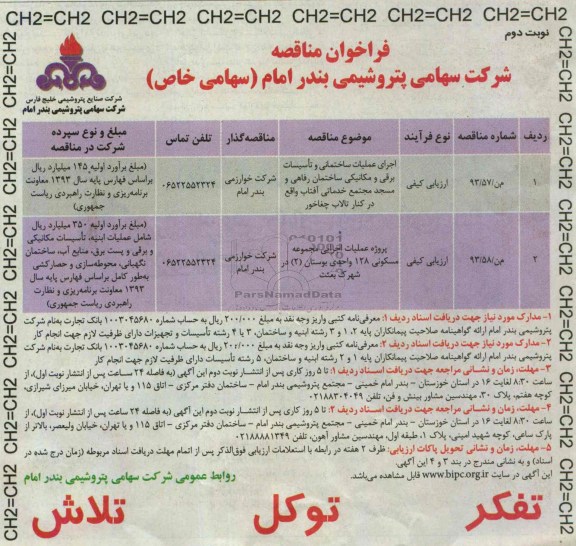 CH2=CH2 CH2=CH2 CH2=CH2 CH2=CH2 CH2=CH2 CH2=CH2 CH2=CH2
نوبت دوم
فراخوان مناقصه
شرکت سهامی پتروشیمی بندر امام (سهامی خاص)
شرکت صنایع پتروشیمی خلیج فارس
شرکت سهامی پتروشیمی بندر امام
ردیف شماره مناقصه نوع فرآیند موضوع مناقصه مناقصه‌گذار تلفن تماس مبلغ و نوع سپرده شرکت در مناقصه
۱ من/۹۳/۵۷ ارزیابی کیفی اجرای عملیات ساختمانی و تأسیسات برقی و مکانیکی ساختمان رفاهی و مسجد مجتمع خدماتی آفتاب واقع در کنار تالاب چفاخور شرکت خوارزمی بندر امام ۰۶۵۲۲۵۵۲۳۲۴ (مبلغ برآورد اولیه ۱۴۵ میلیارد ریال براساس فهارس پایه سال ۱۳۹۳ معاونت برنامه‌ریزی و نظارت راهبردی ریاست جمهوری)
۲ من/۹۳/۵۸ ارزیابی کیفی پروژه عملیات اجرایی مجموعه مسکونی ۱۲۸ واحدی بوستان (۲) در شهرک بعثت شرکت خوارزمی بندر امام ۰۶۵۲۲۵۵۲۳۲۴ (مبلغ برآورد اولیه ۳۵۰ میلیارد ریال شامل عملیات ابنیه، تأسیسات مکانیکی و برقی و پست برق، منابع آب، ساختمان نگهبانی، محوطه‌سازی و حصارکشی به‌طور کامل براساس فهارس پایه سال ۱۳۹۳ معاونت برنامه‌ریزی و نظارت راهبردی ریاست جمهوری)
ParsNamadData
۱- مدارک مورد نیاز جهت دریافت اسناد ردیف ۱: معرفی‌نامه کتبی واریز وجه نقد به مبلغ ۲۰۰/۰۰۰ ریال به حساب شماره ۱۰۰۳۰۴۵۶۸۰ بانک تجارت به‌نام شرکت
پتروشیمی بندر امام ارائه گواهینامه صلاحیت پیمانکاران پایه ۱،۲ و ۳ رشته ابنیه و ساختمان، ۳ یا ۴ رشته تأسیسات و تجهیزات دارای ظرفیت لازم جهت انجام کار
۲- مدارک مورد نیاز جهت دریافت اسناد ردیف ۲: معرفی‌نامه کتبی واریز وجه نقد به مبلغ ۲۰۰/۰۰۰ ریال به حساب شماره ۱۰۰۳۰۴۵۶۸۰ بانک تجارت به‌نام شرکت
پتروشیمی بندر امام ارائه گواهینامه صلاحیت پیمانکاران پایه ۱ و ۲ رشته ابنیه و ساختمان، ۵ رشته تأسیسات دارای ظرفیت لازم جهت انجام کار
۳- مهلت، زمان و نشانی مراجعه جهت دریافت اسناد ردیف ۱: تا ۵ روز کاری پس از انتشار نوبت دوم این آگهی (به فاصله ۲۴ ساعت پس از انتشار نوبت اول)، از
ساعت ۸:۳۰ لغایت ۱۶ در استان خوزستان - بندر امام خمینی - مجتمع پتروشیمی بندر امام - ساختمان دفتر مرکزی - اتاق ۱۱۵ و یا تهران، خیابان میرزای شیرازی،
کوچه هفتم، پلاک ۳۰، مهندسین مشاور بینش و فن، تلفن ۰۲۱۸۸۳۰۴۰۴۹
۴- مهلت، زمان و نشانی مراجعه جهت دریافت اسناد ردیف ۲: تا ۵ روز کاری پس از انتشار نوبت دوم این آگهی (به فاصله ۲۴ ساعت پس از انتشار نوبت اول)، از
ساعت ۸:۳۰ لغایت ۱۶ در استان خوزستان - بندر امام خمینی - مجتمع پتروشیمی بندر امام - ساختمان دفتر مرکزی - اتاق ۱۱۵ و یا تهران، خیابان ولیعصر، بالاتر از
پارک ساعی، کوچه شهید امینی، پلاک ۱، طبقه اول، مهندسین مشاور آهون، تلفن ۰۲۱۸۸۸۸۱۳۴۹
۵- مهلت، زمان و نشانی تحویل پاکات ارزیابی: ظرف ۲ هفته در رابطه با استعلامات ارزیابی فوق‌الذکر پس از اتمام مهلت دریافت اسناد مربوطه (زمان درج شده در
اسناد) و به نشانی مندرج در بند ۳ و ۴ این آگهی.
این آگهی در سایت www.bipc.org.ir قابل مشاهده می‌باشد.
روابط عمومی شرکت سهامی پتروشیمی بندر امام
تفکر توکل تلاش